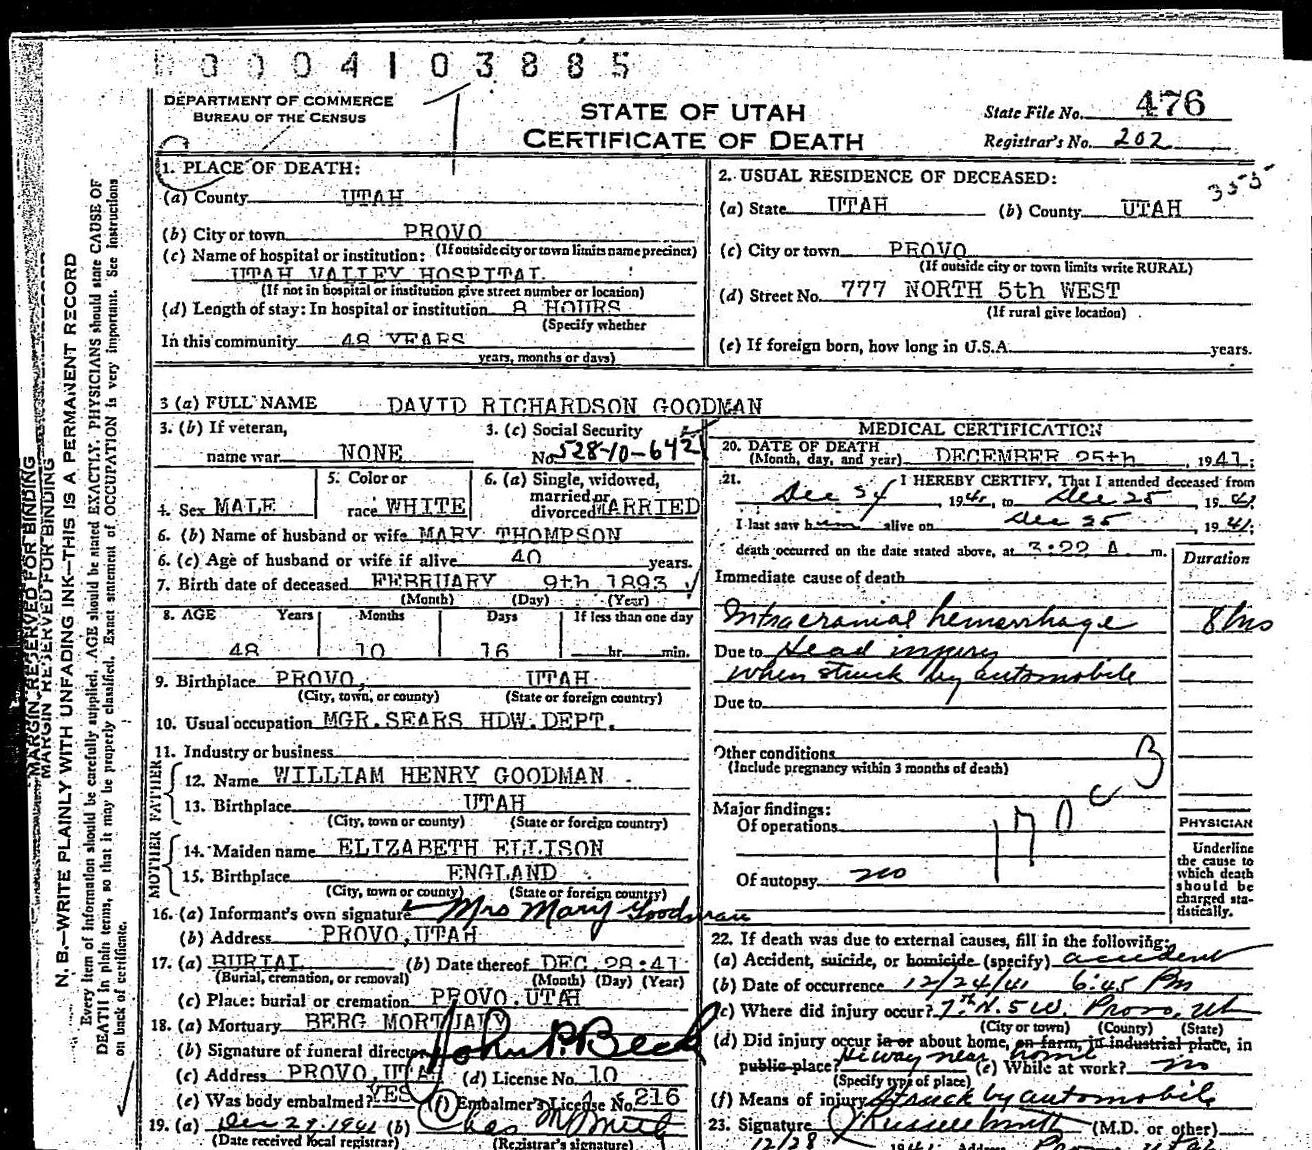 0004103885
DEPARTMENT OF COMMERCE
BUREAU OF THE CENSUS
STATE OF UTAH
CERTIFICATE OF DEATH
State File No. 476
Registrar's No. 202
1. PLACE OF DEATH:
(a) County UTAH
(b) City or town PROVO
(If outside city or town limits name precinct)
(c) Name of hospital or institution:
UTAH VALLEY HOSPITAL
(If not in hospital or institution give street number or location)
(d) Length of stay: In hospital or institution 8 HOURS
(Specify whether
In this community 48 YEARS
years, months or days)
2. USUAL RESIDENCE OF DECEASED:
355
(a) State UTAH (b) County UTAH
(c) City or town PROVO
(If outside city or town limits write RURAL)
(d) Street No. 777 NORTH 5th WEST
(If rural give location)
(e) If foreign born, how long in U.S.A. years.
3 (a) FULL NAME DAVID RICHARDSON GOODMAN
3. (b) If veteran,
name war NONE
3. (c) Social Security
No 528-10-6421
4. Sex MALE
5. Color or
race WHITE
6. (a) Single, widowed,
married or
divorced MARRIED
6. (b) Name of husband or wife MARY THOMPSON
6. (c) Age of husband or wife if alive 40 years.
7. Birth date of deceased FEBRUARY 9th 1893
(Month) (Day) (Year)
8. AGE Years Months Days If less than one day
48 10 16 hr. min.
9. Birthplace PROVO, UTAH
(City, town, or county) (State or foreign country)
10. Usual occupation MGR. SEARS HDW. DEPT.
11. Industry or business
FATHER
12. Name WILLIAM HENRY GOODMAN
13. Birthplace UTAH
(City, town or county) (State or foreign country)
MOTHER
14. Maiden name ELIZABETH ELLISON
15. Birthplace ENGLAND
(City, town or county) (State or foreign country)
16. (a) Informant's own signature Mrs Mary Goodman
(b) Address PROVO, UTAH
17. (a) BURIAL (b) Date thereof DEC. 28:41
(Burial, cremation, or removal) (Month) (Day) (Year)
(c) Place: burial or cremation PROVO, UTAH
18. (a) Mortuary BERG MORTUARY
(b) Signature of funeral director John P. Beck
(c) Address PROVO, UTAH (d) License No. 10
(e) Was body embalmed? YES (f) Embalmer's License No. 216
19. (a) Dec 29, 1941 (b)
(Date received local registrar) (Registrar's signature)
MEDICAL CERTIFICATION
20. DATE OF DEATH
(Month, day, and year) DECEMBER 25th, 1941:
21. I HEREBY CERTIFY, That I attended deceased from
Dec 24 1941, to Dec 25, 1941
I last saw him alive on Dec 25 1941;
death occurred on the date stated above, at 3:22 A. m.
Duration
Immediate cause of death
Intracranial hemorrhage 8 hrs
Due to Head injury
When struck by automobile
Due to
Other conditions
(Include pregnancy within 3 months of death)
170 c B
Major findings:
Of operations
Of autopsy no
PHYSICIAN
Underline
the cause to
which death
should be
charged sta-
tistically.
22. If death was due to external causes, fill in the following:
(a) Accident, suicide, or homicide (specify) accident
(b) Date of occurrence 12/24/41 6:45 Pm
(c) Where did injury occur? 7th N. 5 W. Provo, Ut
(City or town) (County) (State)
(d) Did injury occur in or about home, on farm, in industrial place, in
public place? Hiway near home (e) While at work? no
(Specify type of place)
(f) Means of injury Struck by automobile
23. Signature J Russell Smith (M.D. or other)
12/28 1941 Address Provo Utah
MARGIN RESERVED FOR BINDING
MARGIN RESERVED FOR BINDING
N. B.—WRITE PLAINLY WITH UNFADING INK—THIS IS A PERMANENT RECORD
Every item of information should be carefully supplied. AGE should be stated EXACTLY. PHYSICIANS should state CAUSE OF
DEATH in plain terms, so that it may be properly classified. Exact statement of OCCUPATION is very important. See instructions
on back of certificate.